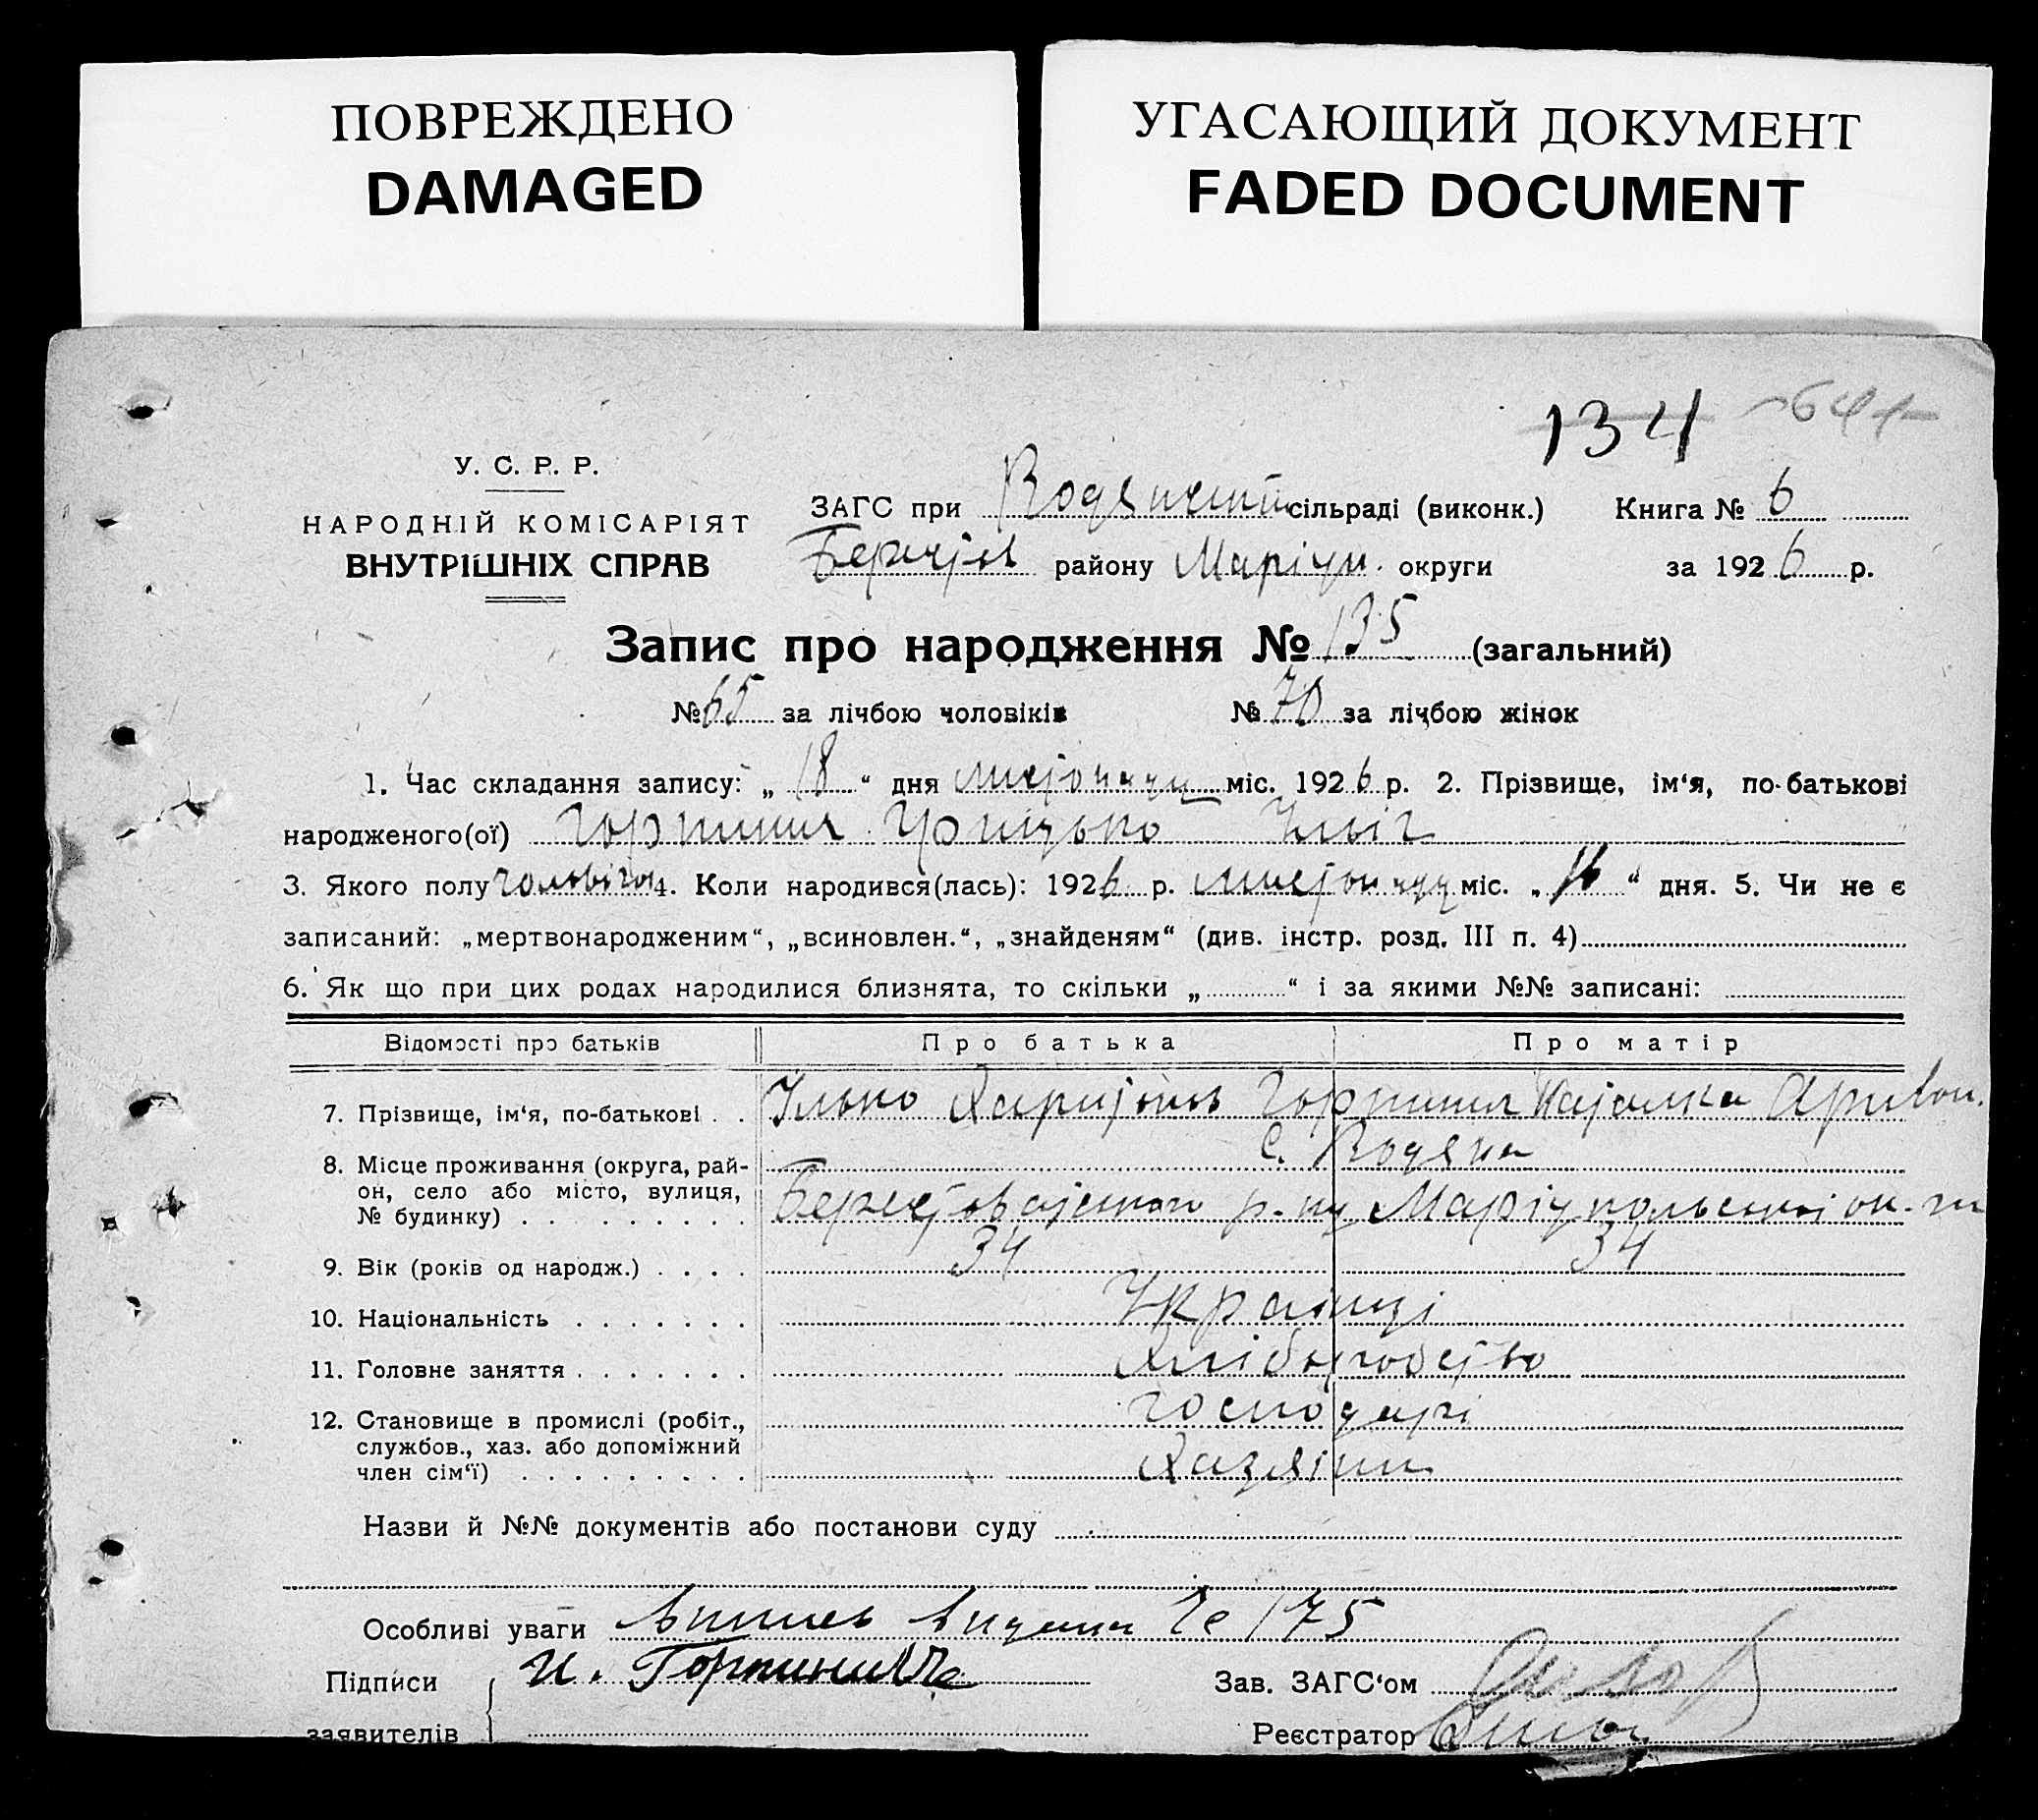 ПОВРЕЖДЕНО
DAMAGED
УГАСАЮЩИЙ ДОКУМЕНТ
FADED DOCUMENT
134
У. С. Р. Р.
НАРОДНІЙ КОМІСАРІЯТ
ВНУТРІШНІХ СПРАВ
ЗАГС при сільраді (виконк.) Книга № 6
району Маріуп. округи за 1926 р.
Запис про народження № 135 (загальний)
№ 65 за лічбою чоловіків № 70 за лічбою жінок
1. Час складання запису: „ 18 “ дня міс. 1926 р. 2. Прізвище, ім‘я, по-батькові
народженого(ої) Горпинич Грицько Ільіч
3. Якого полу 4. Коли народився(лась): 1926 р. міс. „ 16 “ дня. 5. Чи не є
записаний: „мертвонародженим“, „всиновлен.“, „знайденям“ (див. інстр. розд. III п. 4)
6. Як що при цих родах народилися близнята, то скільки „ “ і за якими №№ записані:
Відомості про батьків Про батька Про матір
7. Прізвище, ім‘я, по-батькові . . Ілько Горпинич
8. Місце проживання (округа, рай- с. Водяна
он, село або місто, вулиця, р-ну Маріупольської ок-ги
№ будинку)
9. Вік (років од народж.) . . . . 34 34
10. Національність Українці
11. Головне заняття Хліборобство
12. Становище в промислі (робіт., господарі
службов., хаз. або допоміжний
член сім‘ї) Хазяіни
Назви й №№ документів або постанови суду
Особливі уваги № 175
Підписи И. Горпинич Зав. ЗАГС‘ом
заявителів Реєстратор